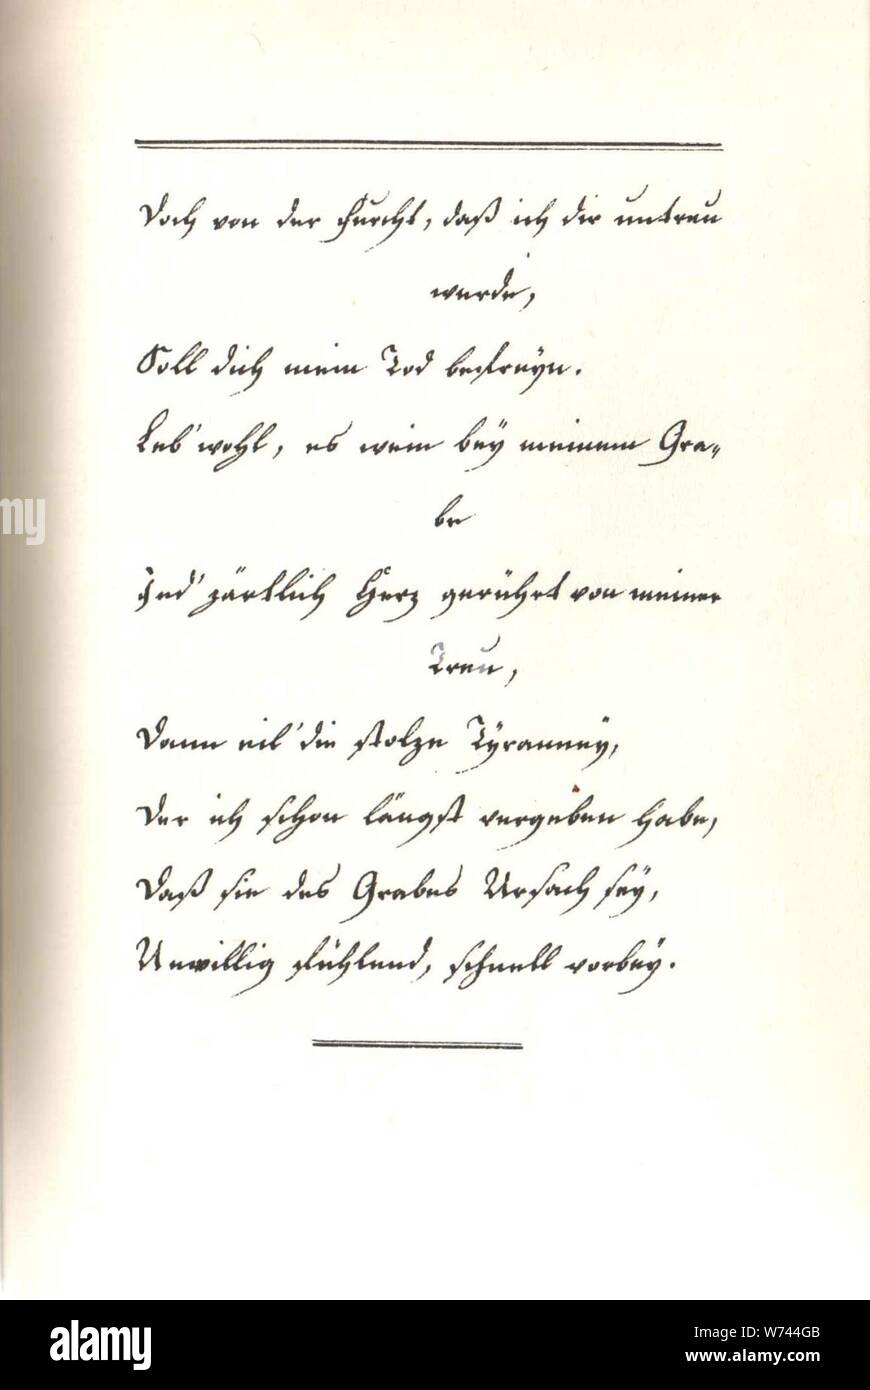 Doch von der Furcht, daß ich dir untreu
werde,
Soll dich mein Tod befreyn.
Leb' wohl, es wein bey meinem Gra-
be
Jed' zärtlich Herz gerührt von meiner
Treu,
Dann eil' die stolze Tyranney,
Der ich schon längst vergeben habe,
Daß sie des Grabes Ursach sey,
Unwillig fühlend, schnell vorbey.
my
alamy
Image ID: W744GB
www.alamy.com